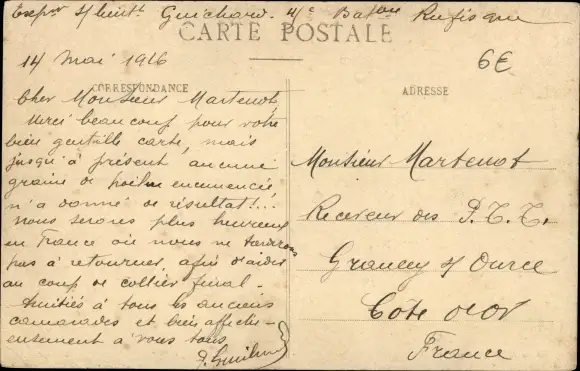 Exp^r s/lieut^t Guichard. 4/e Bat^on Rufisque
CARTE POSTALE
14 Mai 1916
6€
CORRESPONDANCE
Cher Monsieur Martenot,
Merci beaucoup pour votre
bien gentille carte, mais
jusqu'à présent aucune
graine de poilus ensemencée
n'a donné de résultat!...
Nous serons plus heureux
en France où nous ne tarderons
pas à retourner, afin d'aider
au coup de collier final.
Amitiés à tous les anciens
camarades et bien affectu-
eusement à vous tous
ADRESSE
Monsieur Martenot
Receveur des P.T.T.
Grancey s/ Ource
Côte d'Or
France